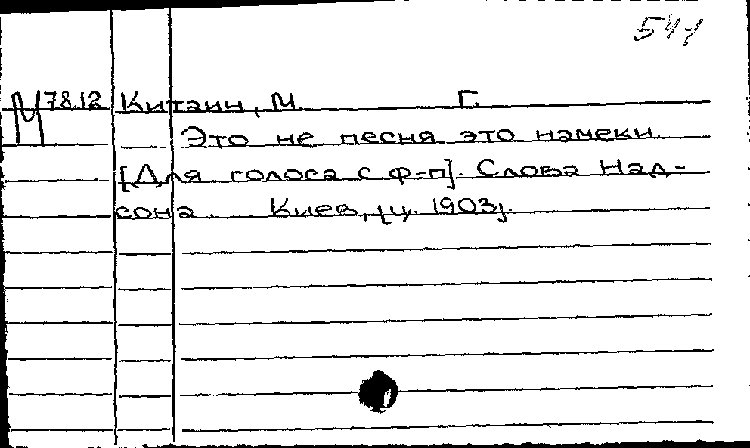 М 78.12 Китаин, М. Г.
Это не песня это намеки.
[Для голоса с ф-п]. Слова Над-
сона. Киев, [ц. 1903].